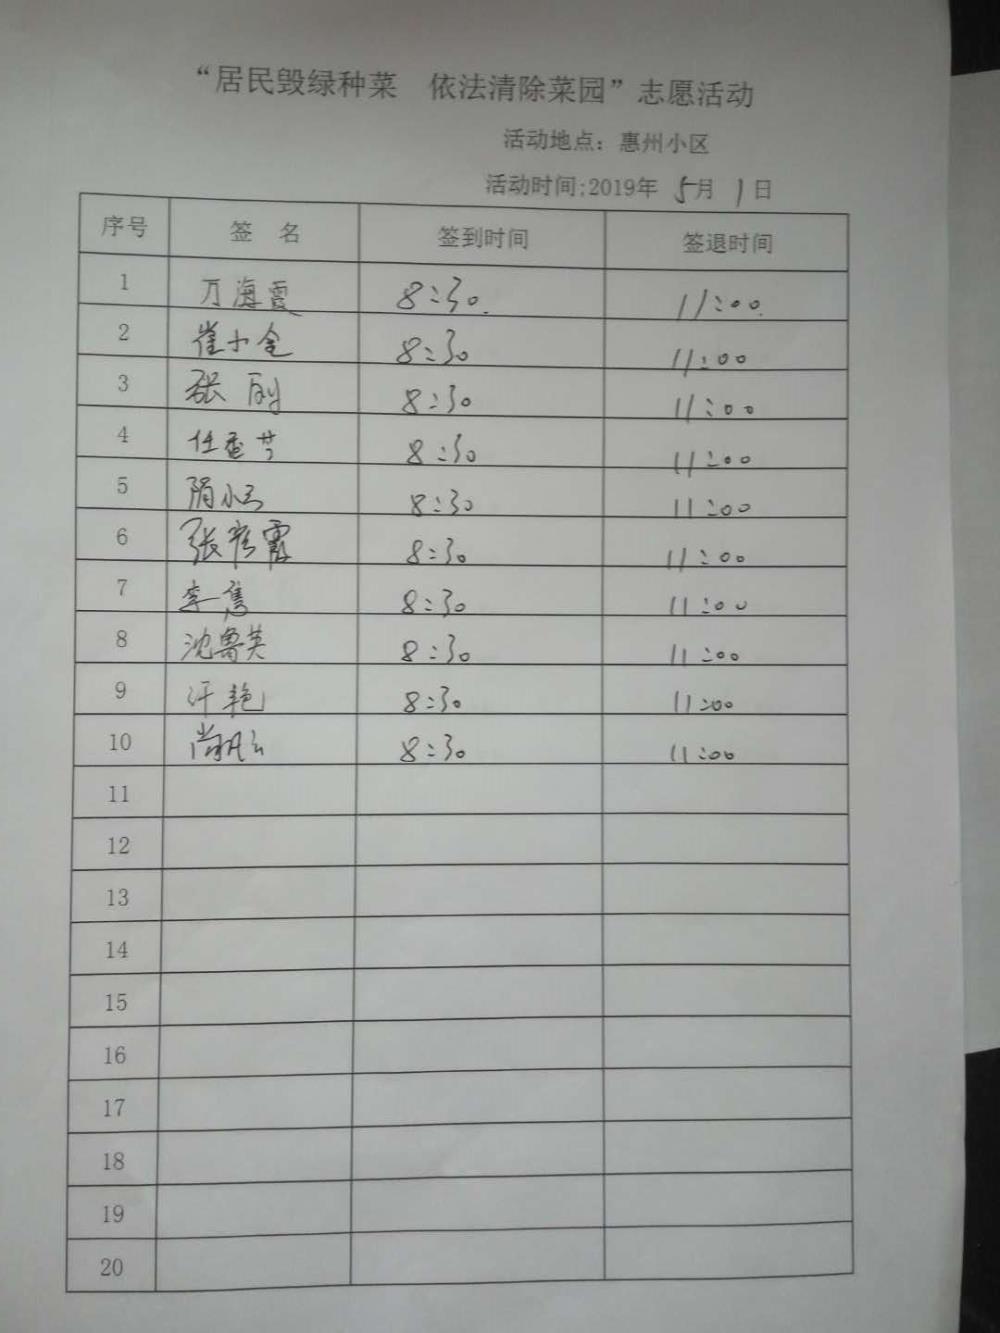 “居民毁绿种菜　依法清除菜园”志愿活动
活动地点：惠州小区
活动时间:2019年 5月 1日
序号 签 名 签到时间 签退时间
1 万海霞 8:30 11:00
2 崔小金 8:30 11:00
3 张 刚 8:30 11:00
4 任香芳 8:30 11:00
5 隋小 8:30 11:00
6 张彦霞 8:30 11:00
7 李隽 8:30 11:00
8 沈鲁英 8:30 11:00
9 汗艳 8:30 11:00
10 尚 8:30 11:00
11
12
13
14
15
16
17
18
19
20